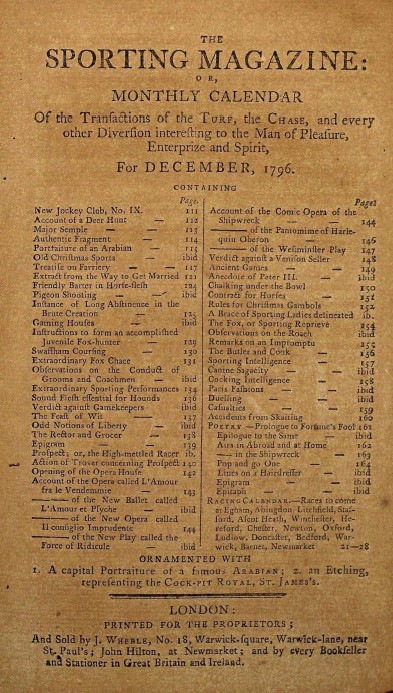 THE
SPORTING MAGAZINE:
OR,
MONTHLY CALENDAR
Of the Tranſactions of the TURF, the CHASE, and every
other Diverſion intereſting to the Man of Pleaſure,
Enterprize and Spirit,
For DECEMBER, 1796.
CONTAINING
Page.
New Jockey Club, No. IX. 111
Account of a Deer Hunt — 112
Major Semple — — 113
Authentic Fragment — 114
Portraiture of an Arabian —
Old Chriſtmas Sports — ibid
Treatiſe on Farriery — 117
Extract from the Way to Get Married
Friendly Barter in Horſe-fleſh 124
Pigeon Shooting — — ibid
Inſtance of Long Abſtinence in the
Brute Creation — 125
Gaming Houſes — ibid
Inſtructions to form an accompliſhed
Juvenile Fox-hunter — 129
Swaffham Courſing — 130
Extraordinary Fox Chace 131
Obſervations on the Conduct of
Grooms and Coachmen ibid
Extraordinary Sporting Performances 134
Sound Fleſh eſſential for Hounds 136
Verdict againſt Gamekeepers ibid
The Feaſt of Wit — 137
Odd Notions of Liberty — ibid
The Rector and Grocer — 138
Epigram — — 139
Proſpect; or, the High-mettled Racer ib.
Action of Trover concerning Proſpect 140
Opening of the Opera Houſe 142
Account of the Opera called L'Amour
fra le Vendemmie 143
—— of the New Ballet called
L'Amour et Pſyche — ibid
—— of the New Opera called
Il conſiglio Imprudente — 144
—— of the New Play called the
Force of Ridicule ibid
Page
Account of the Comic Opera of the
Shipwreck — — 144
—— of the Pantomime of Harle-
quin Oberon — 146
—— of the Weſtminſter Play 147
Verdict againſt a Veniſon Seller 148
Ancient Games — — 149
Anecdote of Peter III. — ibid
Chalking under the Bowl 150
Contract for Horſes — 151
Rules for Chriſtmas Gambols 152
A Brace of Sporting Ladies delineated ib.
The Fox, or Sporting Reprieve 254
Obſervations on the Rough ibid
Remarks on an Impromptu 255
The Butler and Cook — 156
Sporting Intelligence — 157
Canine Sagacity — ibid
Cocking Intelligence — 258
Paris Faſhions — — ibid
Duelling — — ibid
Caſualties — — 259
Accidents from Skaiting 160
POETRY—Prologue to Fortune's Fool 161
Epilogue to the Same — ibid
Airs in Abroad and at Home 162
—— in the Shipwreck — 163
Pop and go One — 164
Lines on a Hairdreſſer — ibid
Epigram — — ibid
Epitaph — — ibid
RACING CALENDAR.—Races to come
at Egham, Abingdon, Litchfield, Staf-
ford, Aſcot Heath, Wincheſter, He-
reford, Cheſter, Newton, Oxford,
Ludlow, Doncaſter, Bedford, War-
wick, Barnet, Newmarket 21—28
ORNAMENTED WITH
1. A capital Portraiture of a famous ARABIAN; 2. an Etching,
repreſenting the COCK-PIT ROYAL, ST. JAMES's.
LONDON:
PRINTED FOR THE PROPRIETORS;
And Sold by J. WHEBLE, No. 18, Warwick-ſquare, Warwick-lane, near
St. Paul's; John Hilton, at Newmarket; and by every Bookſeller
and Stationer in Great Britain and Ireland.